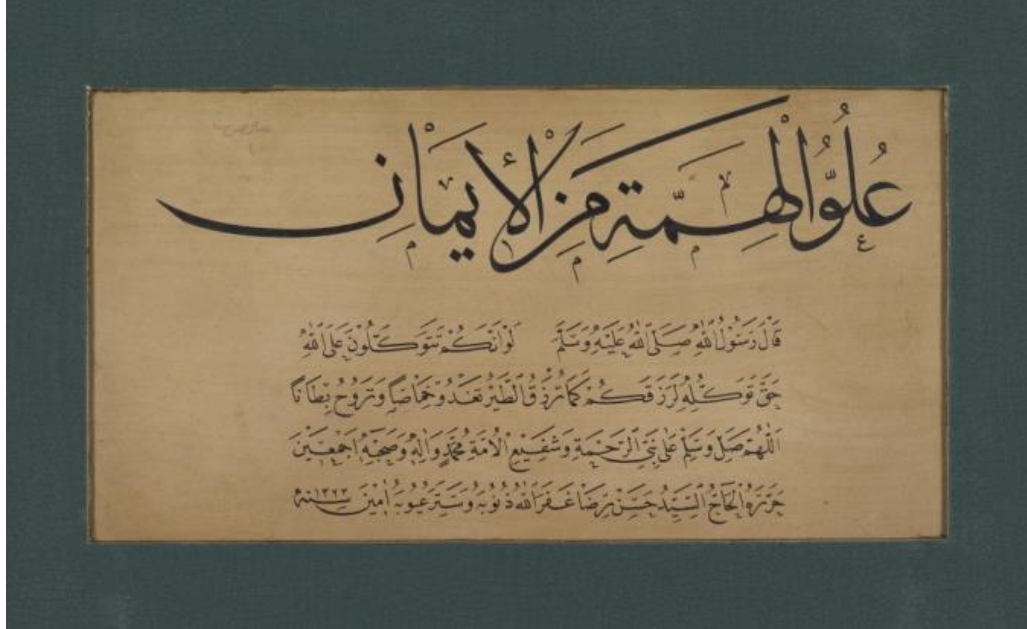 عُلُوُّ الْهِمَّةِ مِنَ الْأِيمَانِ
قَالَ رَسُولُ اللّٰهِ صَلَّى اللّٰهُ عَلَيْهِ وَسَلَّمَ لَوْ اَنَّكُمْ تَتَوَكَّلُونَ عَلَى اللّٰهِ
حَقَّ تَوَكُّلِهِ لَرَزَقَكُمْ كَمَا تُرْزَقُ الطَّيْرُ تَغْدُو خِمَاصًا وَتَرُوحُ بِطَانًا
اَللّٰهُمَّ صَلِّ وَسَلِّمْ عَلٰى نَبِيِّ الرَّحْمَةِ وَشَفِيعِ الْاُمَّةِ مُحَمَّدٍ وَاٰلِهِ وَصَحْبِهِ اَجْمَعِينَ
حَرَّرَهُ الْحَاجُّ السَّيِّدُ حَسَنْ رِضَا غَفَرَ اللّٰهُ ذُنُوبَهُ وَسَتَرَ عُيُوبَهُ اٰمِينَ سنه